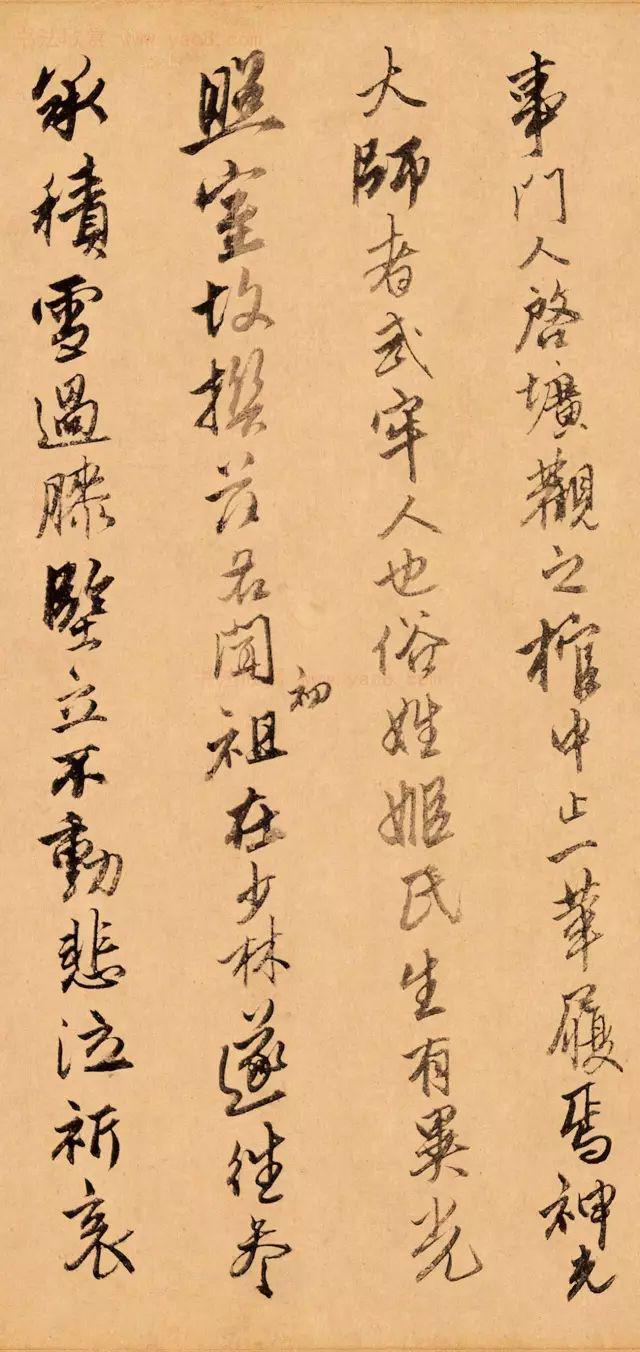 书法欣赏 www.yac8.com
事門人啓壙觀之棺中止一革履焉神光
大師者武牢人也俗姓姬氏生有異光
照室故撰茲名聞初祖在少林遂往參
承積雪過膝壁立不動悲泣祈哀